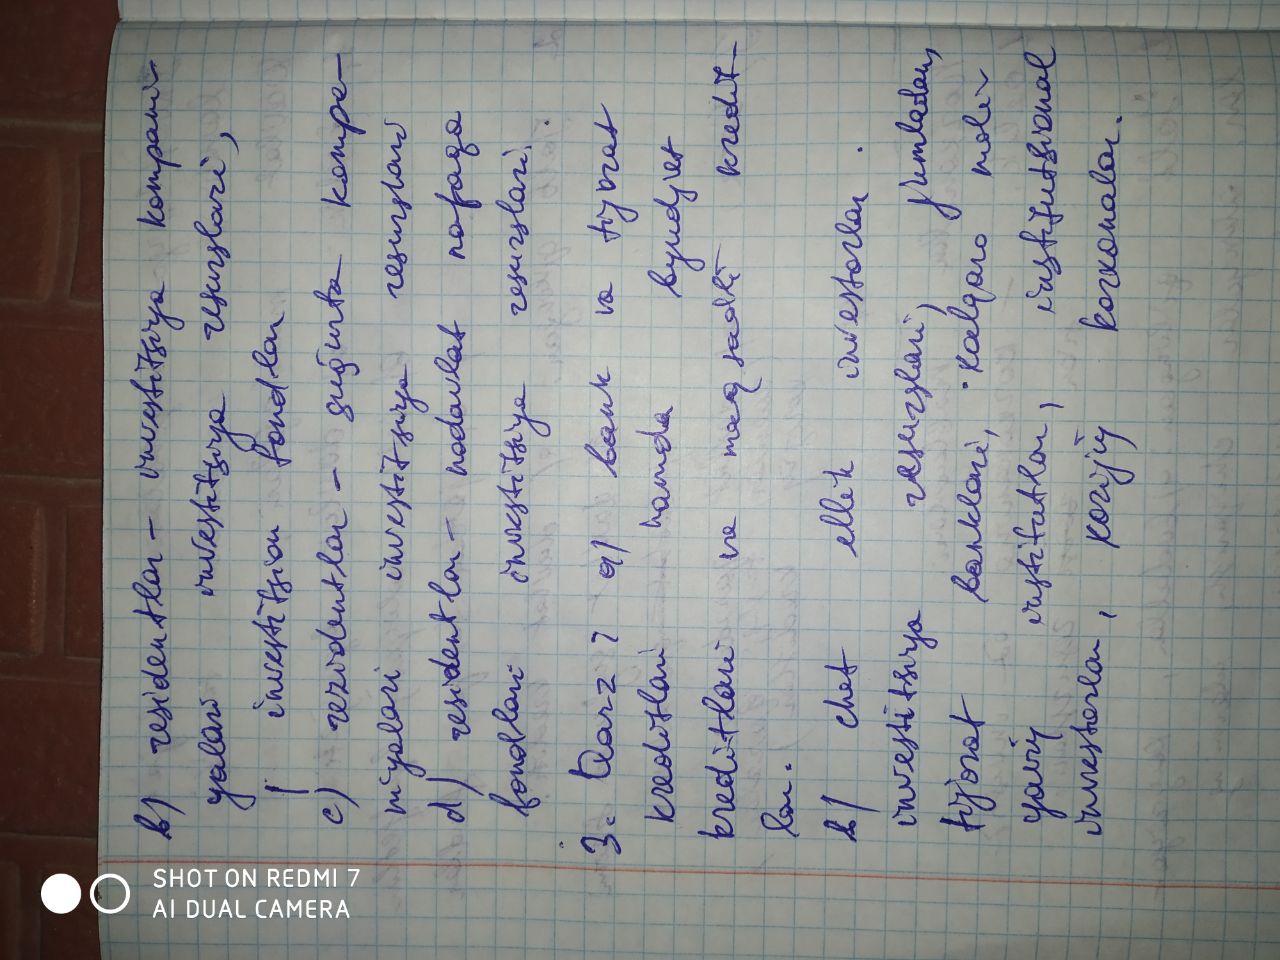 b) residentlar – investitsiya kompani-
yalari investitsiya resurslari,
investitsion fondlar
c) rezidentlar – sug'urta kompa-
niyalari investitsiya resurslari
d) resident lar – nodavlat nafaqa
fondlari investitsiya resurslari.
3. Qarz: a) bank va tijorat
kreditlari hamda byudjet
kreditlari va maqsadli kredit-
lar.
b) chet ellik investorlar.
investitsiya resurslari, jumladan,
tijorat banklari, xalqaro moli-
yaviy institutlar, institutsional
investorlar, xorijiy korxonalar.
SHOT ON REDMI 7
AI DUAL CAMERA